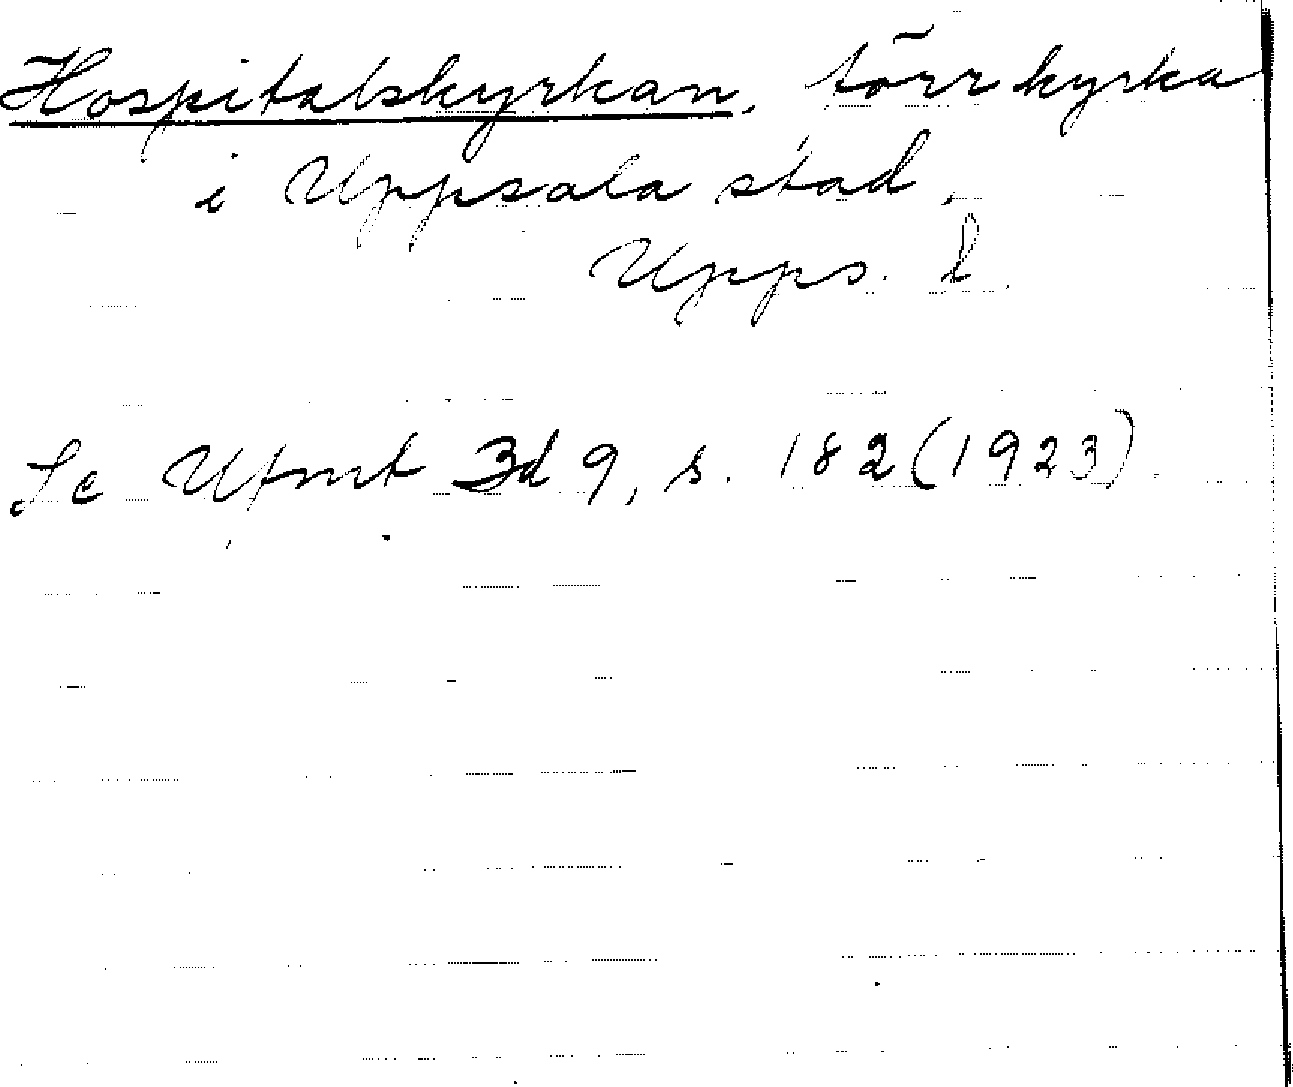 Hospitalskyrkan, förr kyrka
i Uppsala stad,
Upps. l.
Se Ufmt Bd 9, s. 182 (1923).